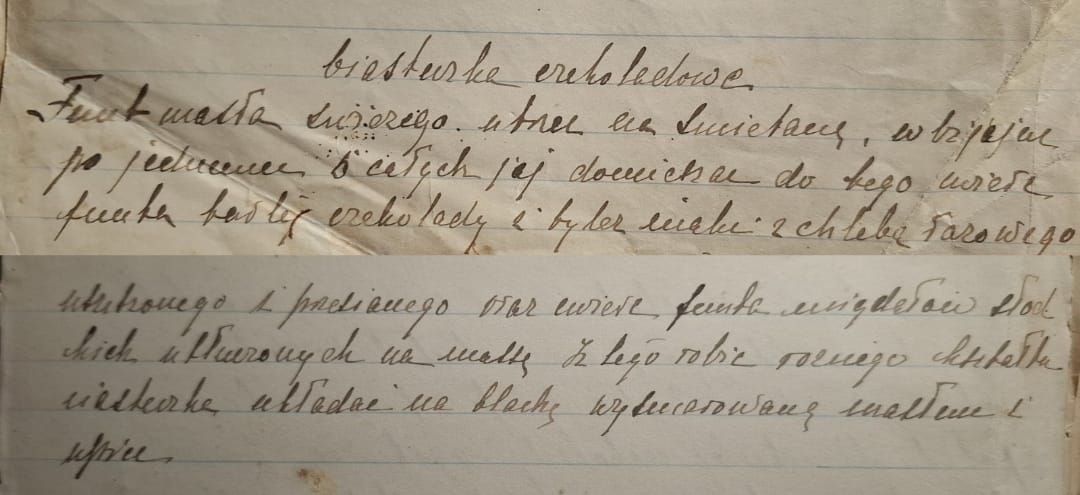 ciasteczka czekoladowe
Funt masła świeżego utrzeć na śmietanę, wbijając
po jednemu 5 całych jaj domieszać do tego ćwierć
funta tartej czekolady i tyleż mąki z chleba razowego
utartego i przesianego oraz ćwierć funta migdałów słod
kich utłuczonych na massę Z tego robić rożnego kształtu
ciasteczka układać na blachę wysmarowaną masłem i
upiec